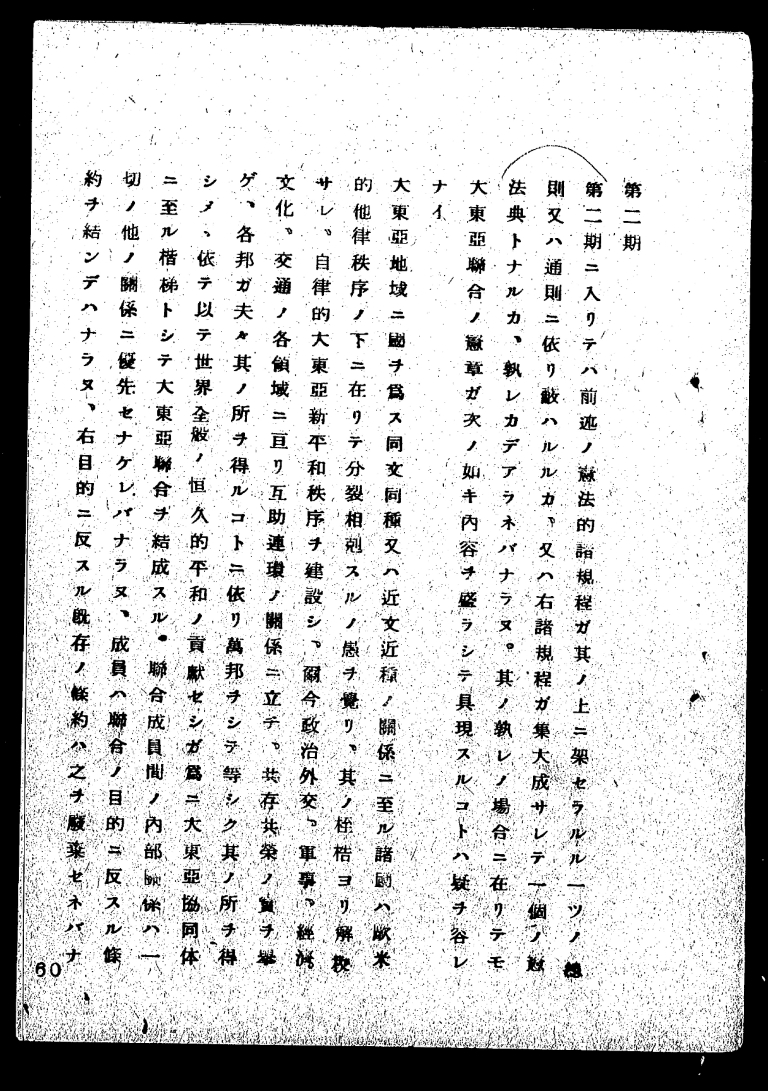 第二期
第二期ニ入リテハ前述ノ憲法的諸規程ガ其ノ上ニ架セラルル一ツノ總
則又ハ通則ニ依リ蔽ハルルカ、又ハ右諸規程ガ集大成サレテ一個ノ
法典トナルカ、孰レカデアラネバナラヌ。其ノ孰レノ場合ニ在リテモ
大東亞聯合ノ憲章ガ次ノ如キ內容ヲ盛ラシテ具現スルコトハ疑ヲ容レ
ナイ
大東亞地域ニ國ヲ爲ス同文同種又ハ近文近種ノ關係ニ至ル諸國ハ歐米
的他律秩序ノ下ニ在リテ分裂相剋スルノ愚ヲ覺リ、其ノ桎梏ヨリ解放
サレ、自律的大東亞新平和秩序ヲ建設シ、爾今政治外交、軍事、經濟、
文化、交通ノ各領域ニ亘リ互助連環ノ關係ニ立チ、共存共榮ノ實ヲ擧
ゲ、各邦ガ夫々其ノ所ヲ得ルコトニ依リ萬邦ヲシテ等シク其ノ所ヲ得
シメ、依テ以テ世界全般ノ恒久的平和ノ貢獻セシガ爲ニ大東亞協同体
ニ至ル楷梯トシテ大東亞聯合ヲ結成スル。聯合成員間ノ內部關係ハ一
切ノ他ノ關係ニ優先セナケレバナラヌ、成員ハ聯合ノ目的ニ反スル條
約ヲ結ンデハナラヌ、右目的ニ反スル既存ノ條約ハ之ヲ廢棄セネバナ
60